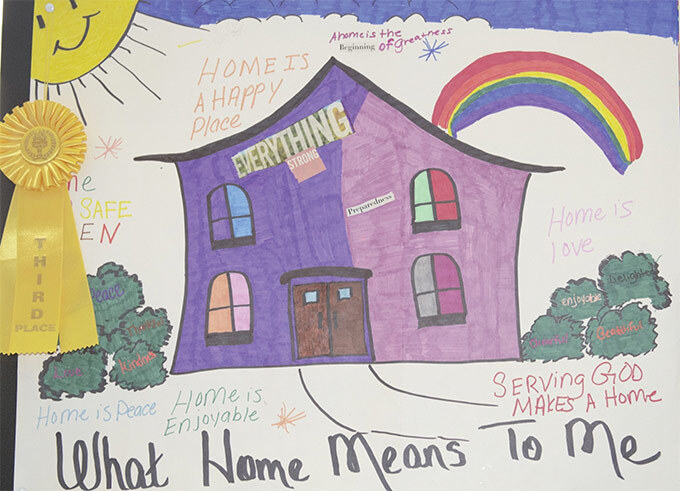 A home is the
Beginning of greatness
HOME IS
A HAPPY
Place
EVERYTHING
STRONG
Preparedness
SAFE
EN
Home is
love
THIRD
PLACE
Peace
enjoyable
Delightful
Beautiful
Home is Peace
Home is
Enjoyable
SERVING GOD
MAKES A Home
What Home Means To Me